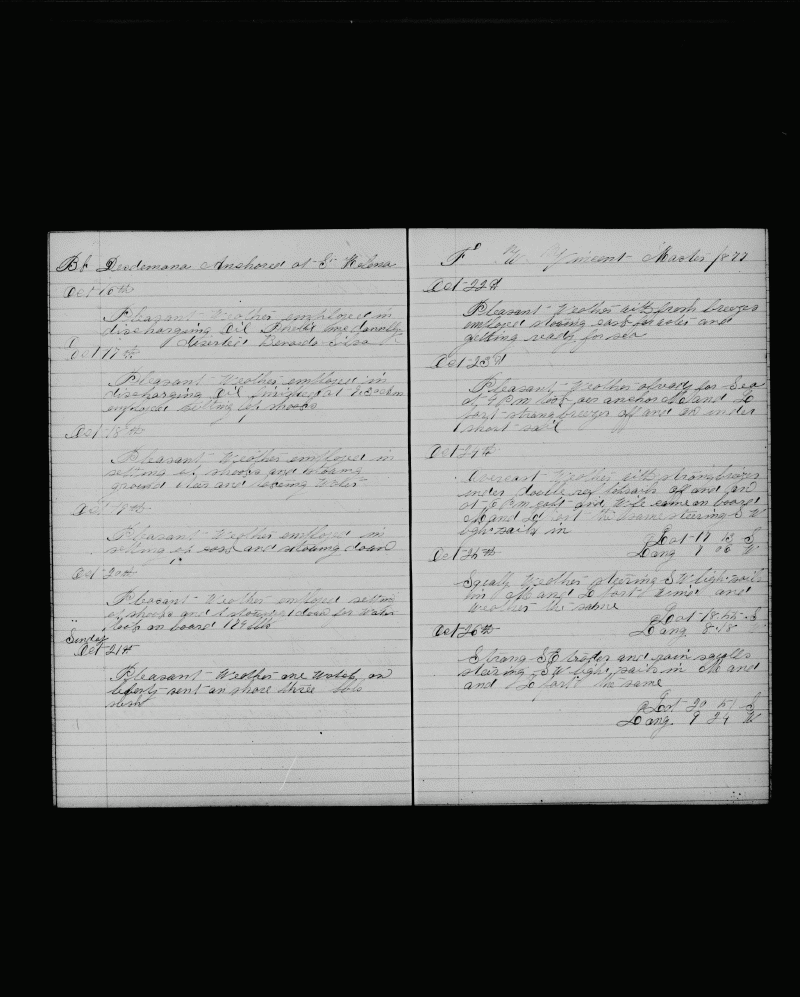 Bk Desdemona Anchored at St Helena
Oct 16th
Pleasant Weather employed in
discharging Oil
diserted
Oct 17th
Pleasant Weather employed in
discharging Oil finished at
employed setting up shooks
Oct 18th
Pleasant Weather employed in
setting up shooks and stowing
ground tier and
Oct 19th
Pleasant Weather employed in
setting up and stowing down
Oct 20th
Pleasant Weather employed setten
up shooks and stowing down for Water
took on board
Sunday
Oct 21st
Pleasant Weather one Watch on
liberty sent on shore three
Master 1877
Oct 22d
Pleasant Weather with fresh breezes
employed stowing and
getting ready for sea
Oct 23d
Pleasant Weather already for Sea
at 4 P.m. took our anchor M and L
part strong breezes off and on under
short sail
Oct 24th
Overcast Weather with strong breezes
under double reef topsails off and on
at 6 P.m. capt and Wife came on board
M and L part the same steering S W
light sails in
Lat 17 S
Long 7 06 W
Oct 25th
Squally Weather steering S W light sails
in M and L part and
Weather the same
Lat 18 S
Long 8 18 W
Oct 26th
Strong S E trades and rain squalls
steering S W light sails in M and
and L part the same
Lat 20 S
Long 9 24 W